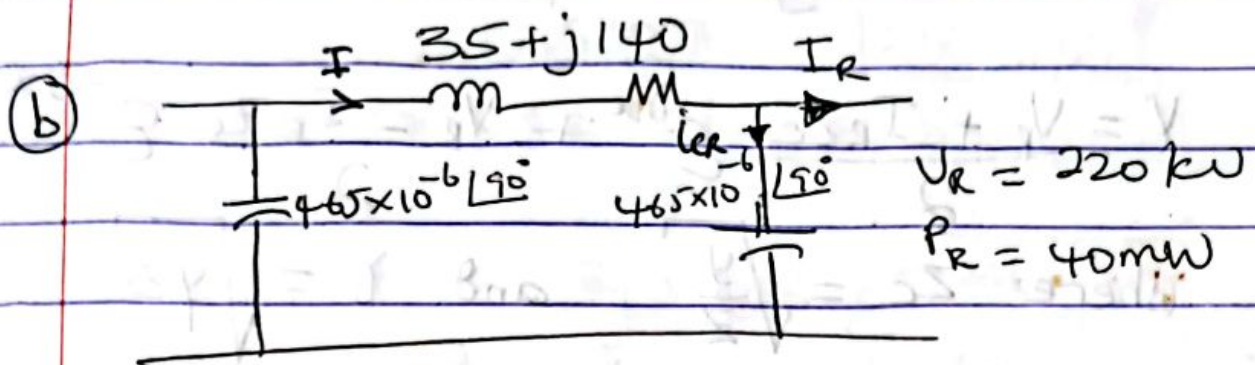 35+j140
ⓑ I I_R
i_CR
465×10⁻⁶∠90° 465×10⁻⁶∠90° V_R = 220 kV
P_R = 40mW